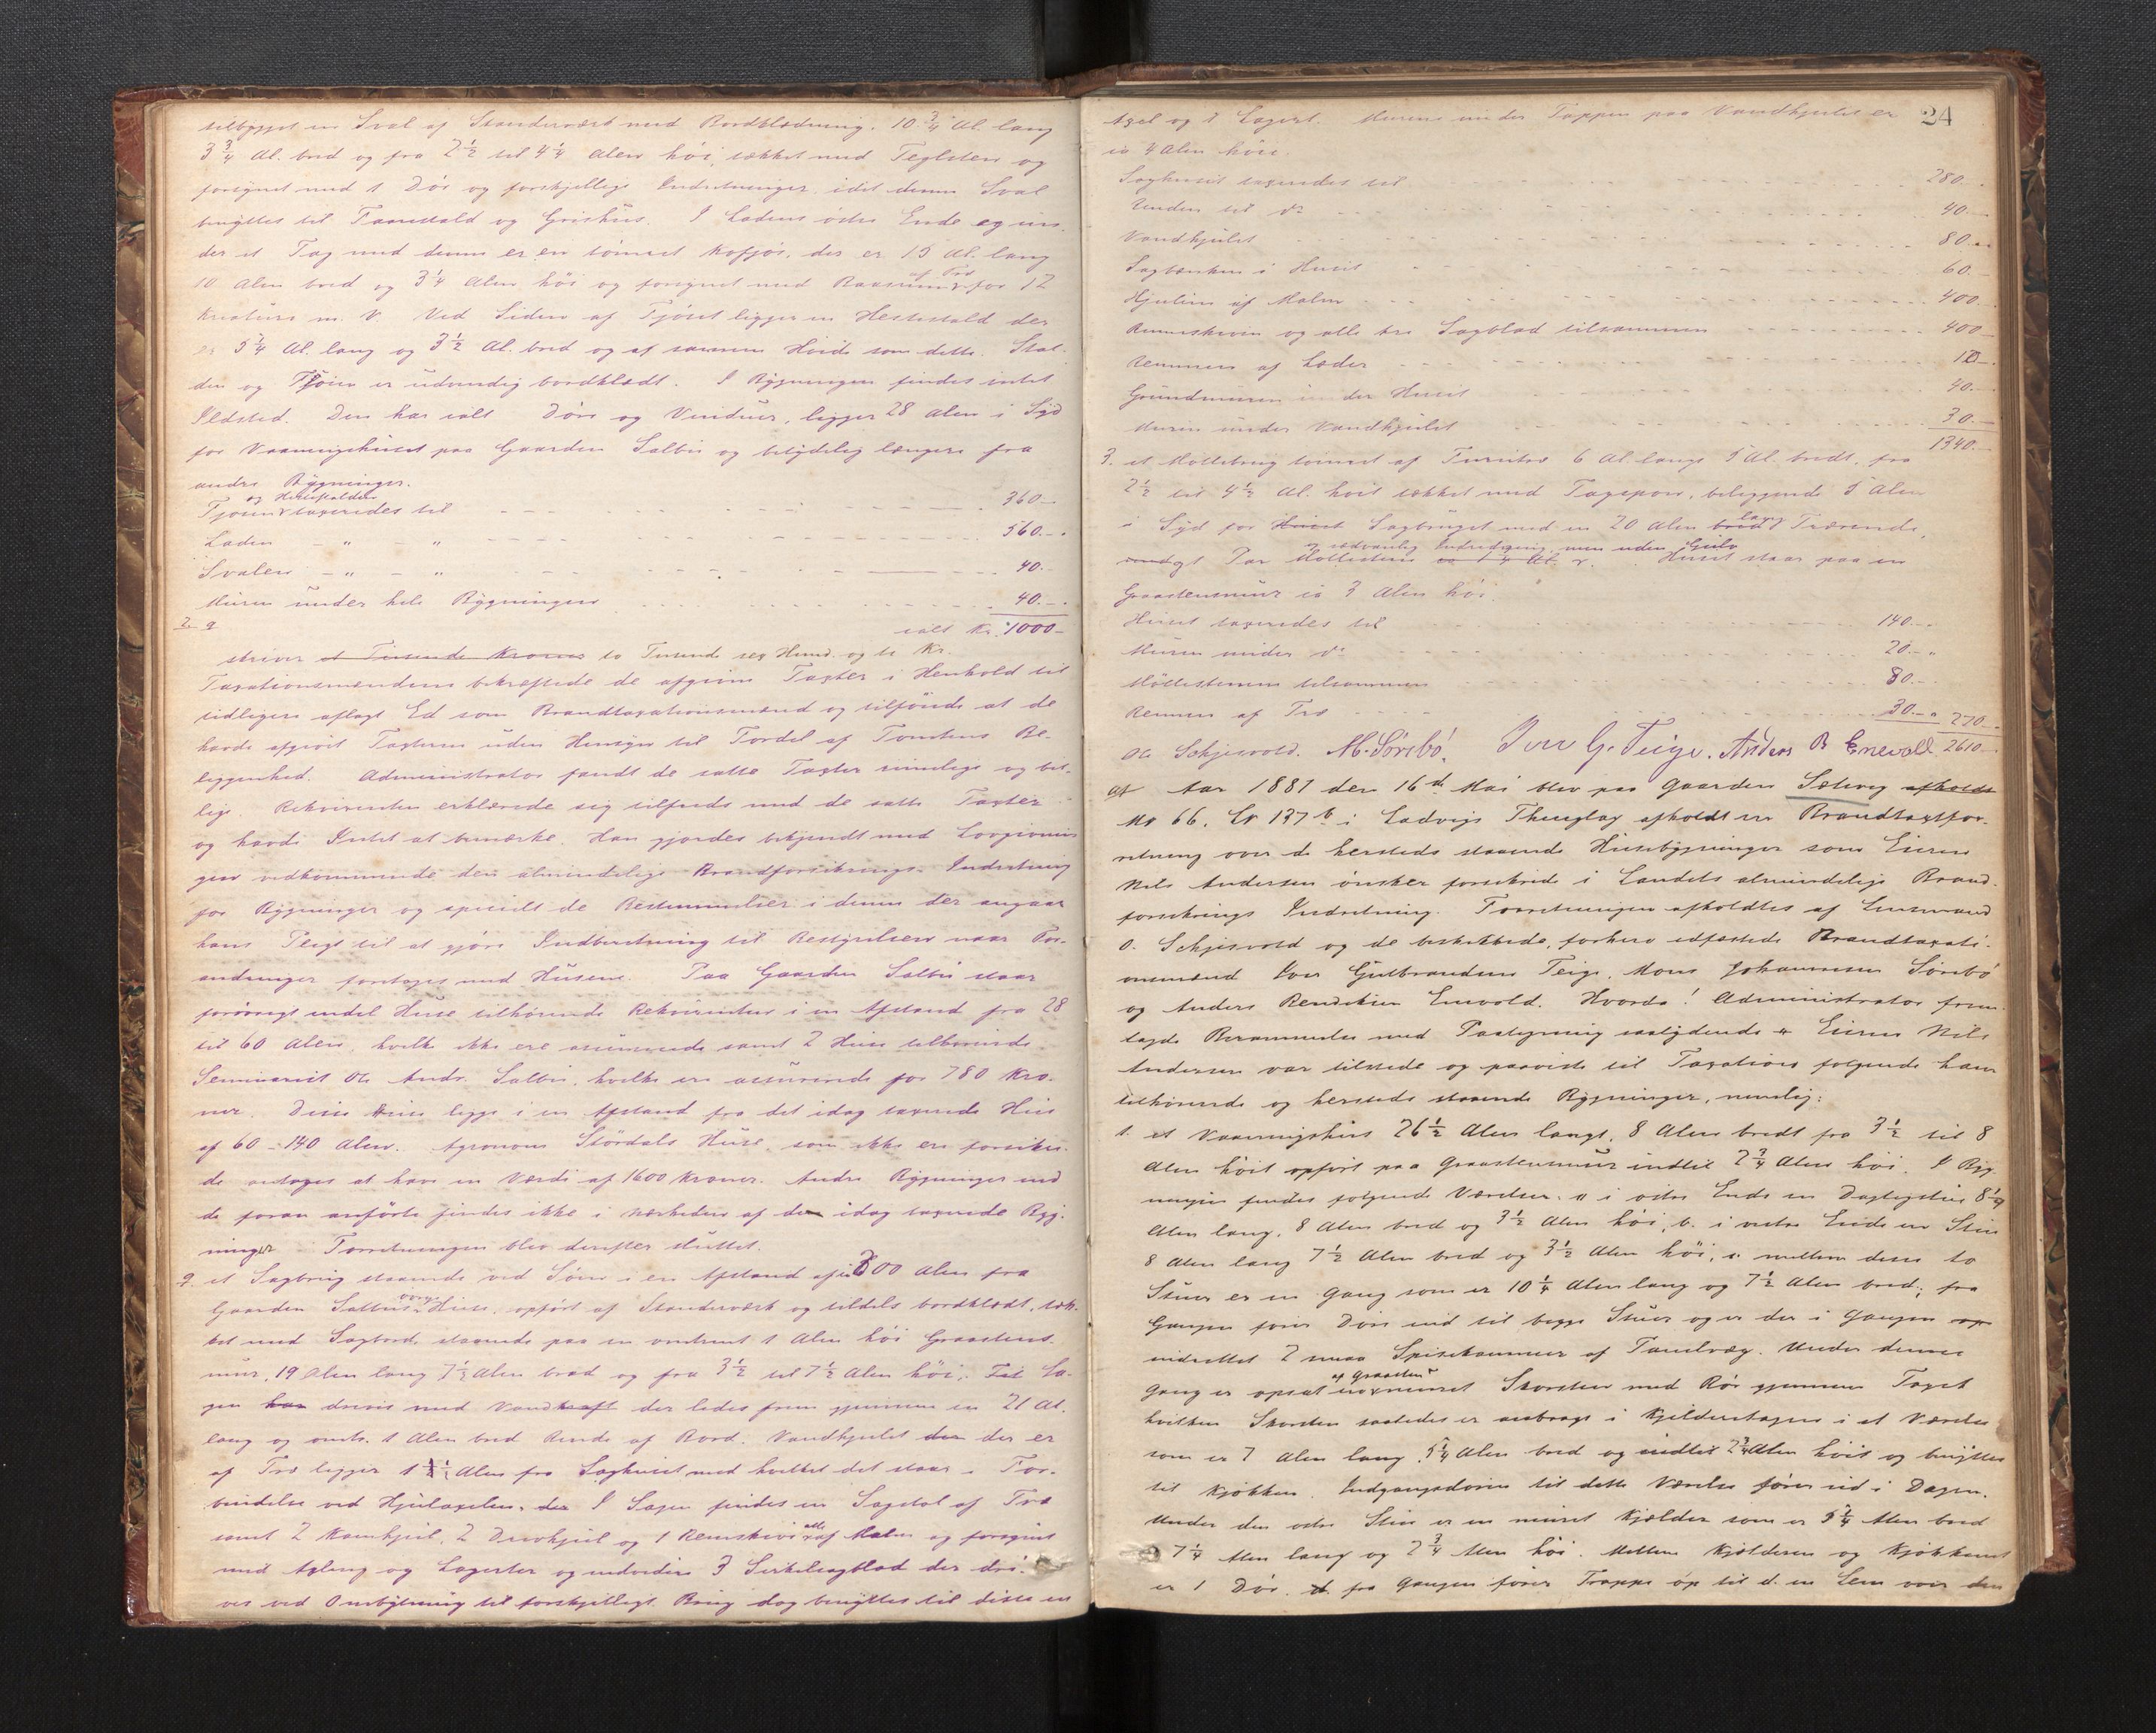 tilbygget en Sval af Standerværk med Bordklædning. 10 3/4 Al. lang
3 3/4 Al. bred og fra 2 1/2 til 4 1/4 Alen höi, tækket med Teglsten og
forsynet med 1 Dör og forskjellige Indretninger idet denne Sval
benyttes til Faarestald og Grishus. I Ladens östre Ende og un-
der et Tag med denne er en tömret Kofjös, der er 15 Al. lang
10 Alen bred og 3 1/4 Alen höi og forsynet med Baasrum af Træ for 12
Kreature m. V. Ved Siden af Fjöset ligger en Hestestald der
er 5 1/4 Al. lang og 3 1/2 Al. bred og af samme Höide som dette. Stal-
den og Fjösen er udvendig bordklædt. I Bygningen findes intet
Ildsted. Den har ialt Döre og Vinduer, ligger 28 Alen i Syd
for Vaaningshuset paa Gaarden Saltbu og betydelig længere fra
andre Bygninger.
Fjösen og Hestestalden taxeredes til 360.-
Laden - " - " 560.-
Svalen - " - " 40.-
Muren under hele Bygningen 40.-
2 9
ialt Kr. 1000-
skriver et Tusende Kroner to Tusende sex Hund. og ti Kr.
Taxationsmændene bekræftede de afgivne Taxter i Henhold til
tidligere aflagt Ed som Brandtaxationsmænd og tilföiede at de
havde afgivet Taxterne uden Hensyn til Fordel af Tomtens Be-
liggenhed. Administrator fandt de satte Taxter rimelige og bil-
lige. Rekvirenten erklærede sig tilfreds med de satte Taxter
og havde Intet at bemærke. Han gjordes bekjendt med Lovgivnin-
gen vedkommende den almindelige Brandforsikrings-Indretning
for Bygninger og specielt de Bestemmelser i denne der angaar
hans Pligt til at gjöre Indberetning til Bestyrelsen naar For-
andringer foretages med Husene. Paa Gaarden Saltbu staar
forövrigt endel Huse tilhörende Rekvirenten i en Afstand fra 28
til 60 Alen, hvilke ikke ere assurerede samt 2 Huse tilhörende
Seminarist Ole Andr. Saltbu, hvilke ere assurerede for 780 Kro-
ner. Disse Huse ligge i en Afstand fra det idag taxerede Hus
af 60 - 140 Alen. Agronom Stördals Huse, som ikke ere forsikre-
de antages at have en Værdi af 1600 Kroner. Andre Bygninger end
de foran anförte findes ikke i Nærheden af den idag taxerede Byg-
ninger. Forretningen blev derefter sluttet.
2. et Sagbrug staaende ved Söen i en Afstand af 200 Alen fra
Gaarden Saltbus övrige Huse, opfört af Standerværk og tildels bordklædt, tæk-
ket med Sagbord, staaende paa en omtrent 1 Alen höi Graastens-
mur, 19 Alen lang 7 1/2 Alen bred og fra 3 1/2 til 7 1/2 Alen höi. Til Sa-
gen har drives med Vandkraft der ledes frem gjennem en 21 Al.
lang og omtr. 1 Alen bred Rende af Bord. Vandhjulet den der er
af Træ ligger 1 1/2 Alen fra Saghuset med hvilket det staar i For-
bindelse ved Hjulaxelen. der I Sagen findes en Sagstol af Træ
samt 2 Kamhjul, 2 Drevhjul og 1 Remskive alle af Malm og forsynet
med Axling og Lagerter og endvidere 3 Sirkelsagblad der dri-
ves ved Ombytning til forskjelligt Brug dog benyttes til disse en
24
Axel og 1 Lagert. Murene under Tappen paa Vandhjulet er
ca 4 Alen höie.
Saghuset taxeredes til 280.-
Renden til do 40.-
Vandhjulet 80.-
Sagbænken i Huset 60.-
Hjulene af Malm 400.-
Remmeskiven og alle tre Sagblad tilsammen 400-
Remmen af Læder 10-.
Grundmuren under Huset 40.-
Muren under Vandhjulet 30.-
1340.-
3. et Möllebrug tömret af Furutræ 6 Al. langt 5 Al. bredt, fra
2 1/2 til 4 1/2 Al. höit tækket med Tagspon, beliggende 5 Alen
i Syd for Huset Sagbruget med en 20 Alen bred lang Trærende,
Par Möllestene og sædvanlig Indredning men uden Huset staar paa en
Graastensmur ca 3 Alen höi.
Huset taxeredes til 140.-
Muren under do 20.-
Möllestenene tilsammen 80.-
Rennen af Træ 30.- 270.-
Ole Schjesvold. M. Sörebö. Iver G. Teige. Anders B Enevold 2610.-
Aar 1881 den 16de Mai blev paa Gaarden Sæteveg afholdt
No 66. Lb 137b i Ladvigs Thinglag afholdt en Brandtaxtfor-
retning over de hersteds staaende Husebygninger som Eieren
Nils Andersen önsker forsikrede i Landets almindelige Brand-
forsikrings Indretning. Forretningen afholdtes af Lensmand
O. Schjesvold og de beskikkede, forhen edfæstede Brandtaxati-
onsmænd Iver Gulbrandsen Teige, Mons Johannesen Sörebö
og Anders Bendiksen Enevold. Hvorda! Administrator frem-
lagde Berammelse med Paategning saalydende " Eieren Nils
Andersen var tilstede og paaviste til Taxation fölgende ham
tilhörende og hersteds staaende Bygninger, nemlig:
1. et Vaaningshus 26 1/2 Alen langt, 8 Alen bredt fra 3 1/2 til 8
Alen höit opfört paa Graastensmur indtil 2 3/4 Alen höi. I Byg-
ningen findes fölgende Værelser: a i östre Ende en Dagligstue 8 1/4
Alen lang, 8 Alen bred og 3 1/2 Alen höi, b. i vestre Ende en Stue
8 Alen lang 7 1/2 Alen bred og 3 1/2 Alen höi, c. mellem disse to
Stuer er en Gang som er 10 1/4 Alen lang og 7 1/2 Alen bred; fra
Gangen förer Döre ind til begge Stuer og er der i Gangen op
indrettet 2 smaa Spisekammere af Panelvæg. Under denne
Gang er opsat af Graasten en muret Skorsten med Rör gjennem Taget
hvilken Skorsten saaledes er anbragt i Kjelderetagen i et Værelse
som er 7 Alen lang 5 1/4 Alen bred og indtil 2 3/4 Alen höit og benyttes
til Kjökken. Indgangsdören til dette Værelse förer ud i Dagen.
Under den östre Stue er en muret Kjælder som er 5 1/4 Alen bred
7 1/4 Alen lang og 2 3/4 Alen höi. Mellem Kjælderen og Kjökkenet
er 1 Dör. d. fra Gangen förer Trappe op til d. en Lem over den